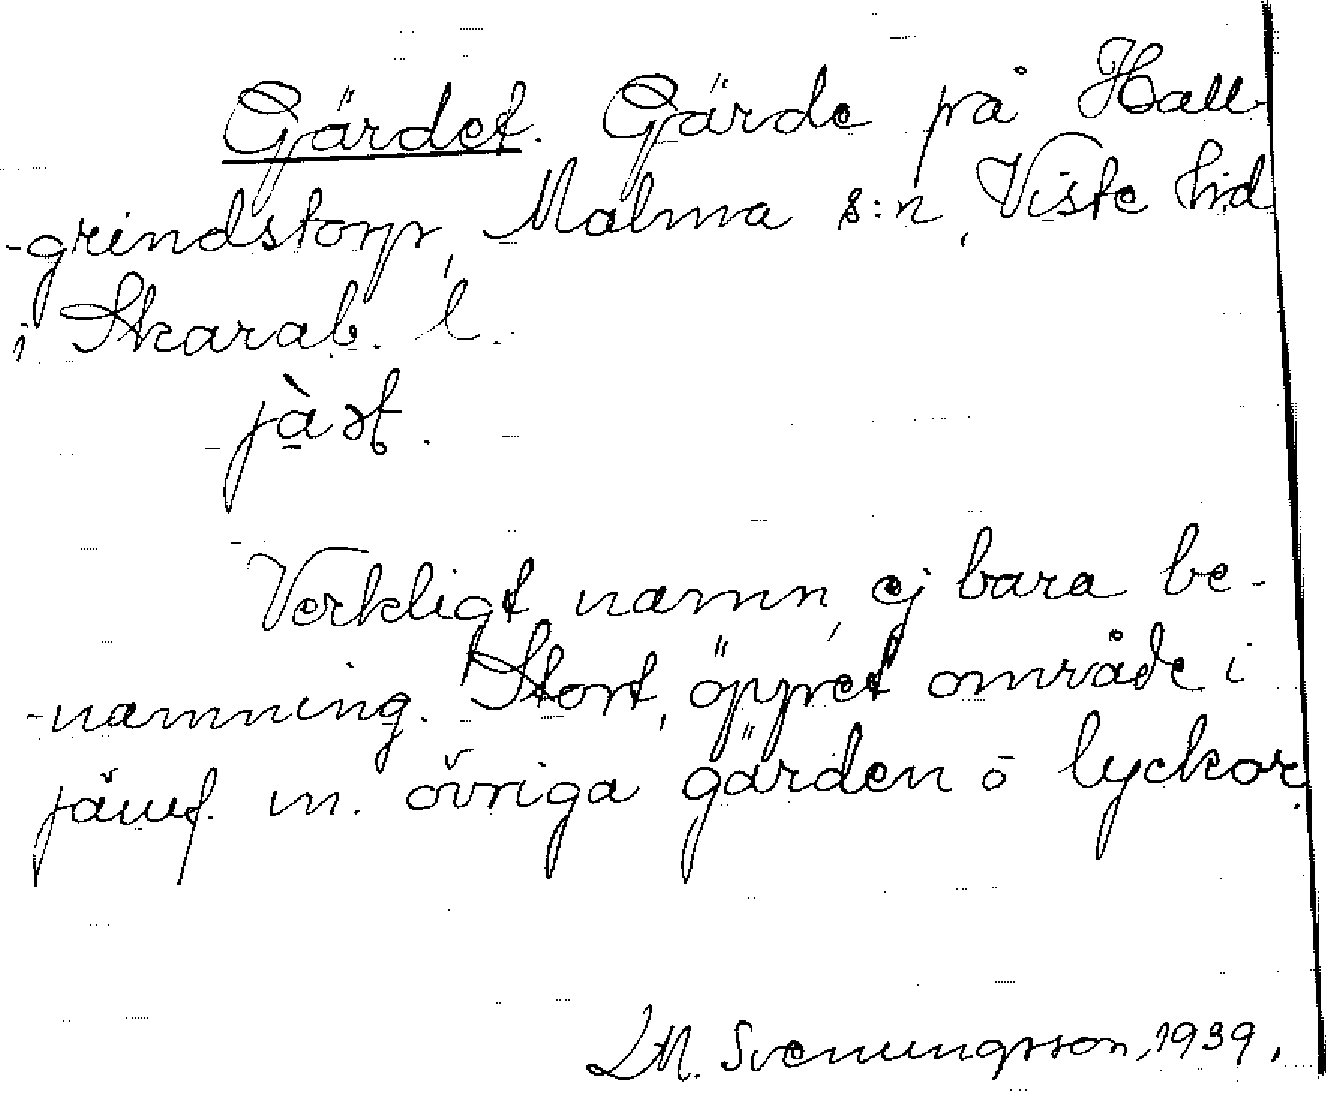 Gärdet. Gärde på Hall-
-grindstorp, Malma s:n, Viste hd
i Skarab. l.
jàt.
Verkligt namn, ej bara be-
-nämning. Stort, öppet område i
jämf. m. övriga gärden o lyckor.
LM. Svenungsson, 1939.